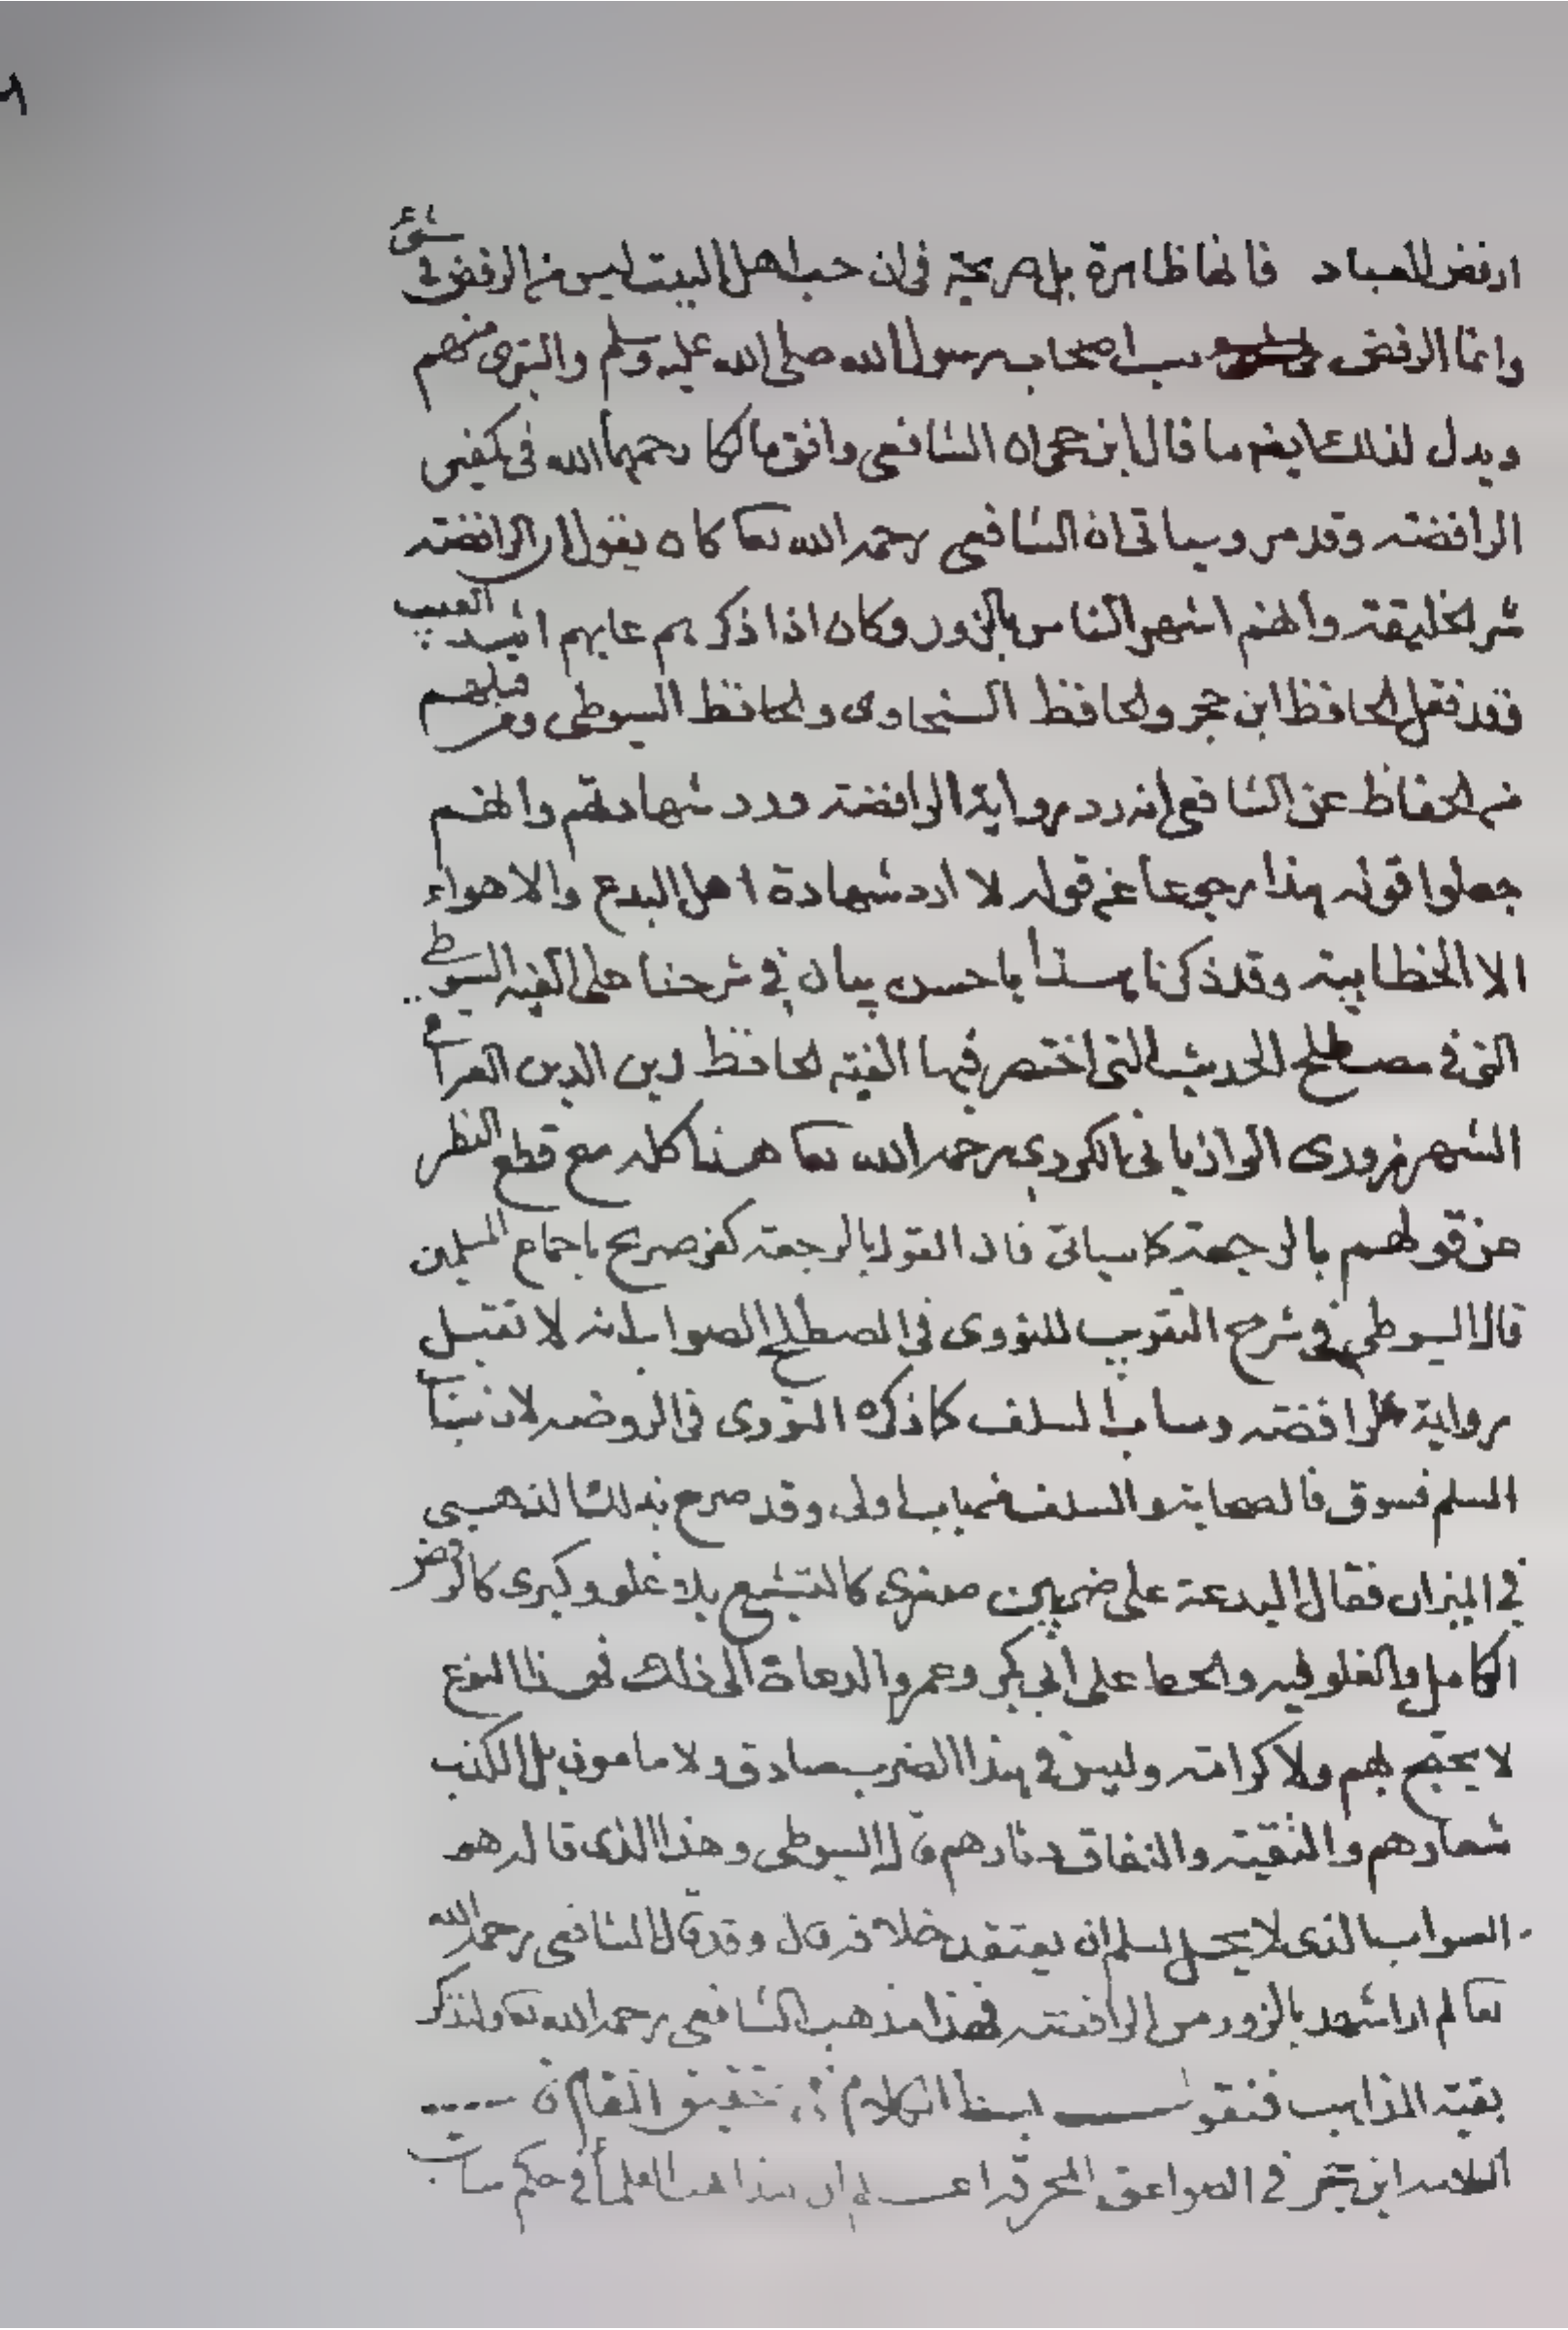 ارفض للعباد فانها ظاهرة بل صريحة فى ان حب اهل البيت ليس من الرفض فى شئ
وانما الرفض سب اصحاب رسول الله صلى الله عليه وسلم والتبرى منهم
ويدل لذلك ايضا ما قال ابن حجر ان الشافعى وافق مالكا رحمهما الله فى تكفير
الرافضة وقد مر وسياتى ان الشافعى رحمه الله تعا كان يقول ان الرافضة
شر الخليقة وانهم اشهر الناس بالزور وكان اذا ذكرهم عابهم اشد العيب
فقد نقل الحافظ ابن حجر والحافظ السخاوى والحافظ السيوطى ومن قبلهم
من الحفاظ عن الشافعى انه رد رواية الرافضة ورد شهادتهم وانهم
جعلوا قوله هذا رجوعا عن قوله لا ارد شهادة اهل البدع والاهواء
الا الخطابية وقد ذكرنا هذا باحسن بيان فى شرحنا على الفية السيوطى
التى فى مصطلح الحديث التى اختصر فيها الفية الحافظ زين الدين العراقى
الشهرزورى الرازيانى الكردى رحمه الله تعا هذا كله مع قطع النظر
عن قولهم بالرجعة كما سياتى فان القول بالرجعة كفر صريح باجماع المسلمين
قال السيوطى فى شرح التقريب للنووى فى المصطلح الصواب انه لا تقبل
رواية الرافضة وساب السلف كما ذكره النووى فى الروضة لان سباب
المسلم فسوق فالصحابة والسلف من باب اولى وقد صرح بذلك الذهبى
فى الميزان فقال البدعة على ضربين صغرى كالتشيع بلا غلو وكبرى كالرفض
الكامل والغلو فيه والحط على ابى بكر وعمر والدعاة الى ذلك فهذا النوع
لا يحتج بهم ولا كرامة وليس فى هذا الضرب صادق ولا مامون بل الكذب
شعارهم والتقية والنفاق دثارهم قال السيوطى وهذا الذى قاله هو
الصواب الذى لا يحل لمسلم ان يعتقد خلافه قال وقد قال الشافعى رحمه الله
تعا لم ار اشهد بالزور من الرافضة فهذا مذهب الشافعى رحمه الله تعا ولنذكر
بقية المذاهب فنقول بسط الكلام تحقيق المقام قال
العلامة ابن حجر فى الصواعق المحرقة اعلم ان مذاهب العلماء فى حكم ساب